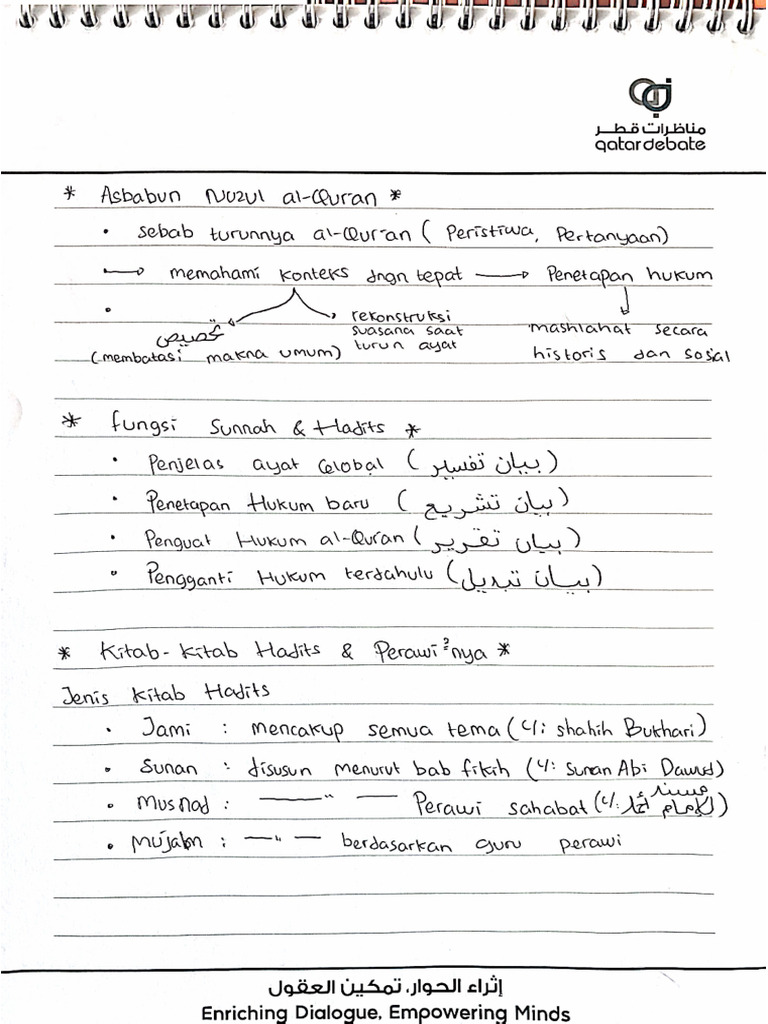 مناظرات قطر
qatardebate
* Asbabun Nuzul al-Qur'an *
• sebab turunnya al-Qur'an ( Peristiwa, Pertanyaan)
→ memahami konteks dngn tepat → Penetapan hukum
•
تخصيص
(membatasi makna umum)
rekonstruksi
suasana saat
turun ayat
mashlahat secara
historis dan sosial
* Fungsi Sunnah & Hadits *
• Penjelas ayat Global (بيان تفسير)
• Penetapan Hukum baru (بيان تشريع)
• Penguat Hukum al-Qur'an (بيان تقرير)
• Pengganti Hukum terdahulu (بيان تبديل)
* Kitab-kitab Hadits & Perawi²nya *
Jenis kitab Hadits
• Jami : mencakup semua tema (c/: shahih Bukhari)
• Sunan : disusun menurut bab fikih (c/: Sunan Abi Dawud)
• Musnad : —"— Perawi sahabat (c/: مسند الإمام أحمد)
• Mu'jam : —"— berdasarkan guru perawi
إثراء الحوار، تمكين العقول
Enriching Dialogue, Empowering Minds